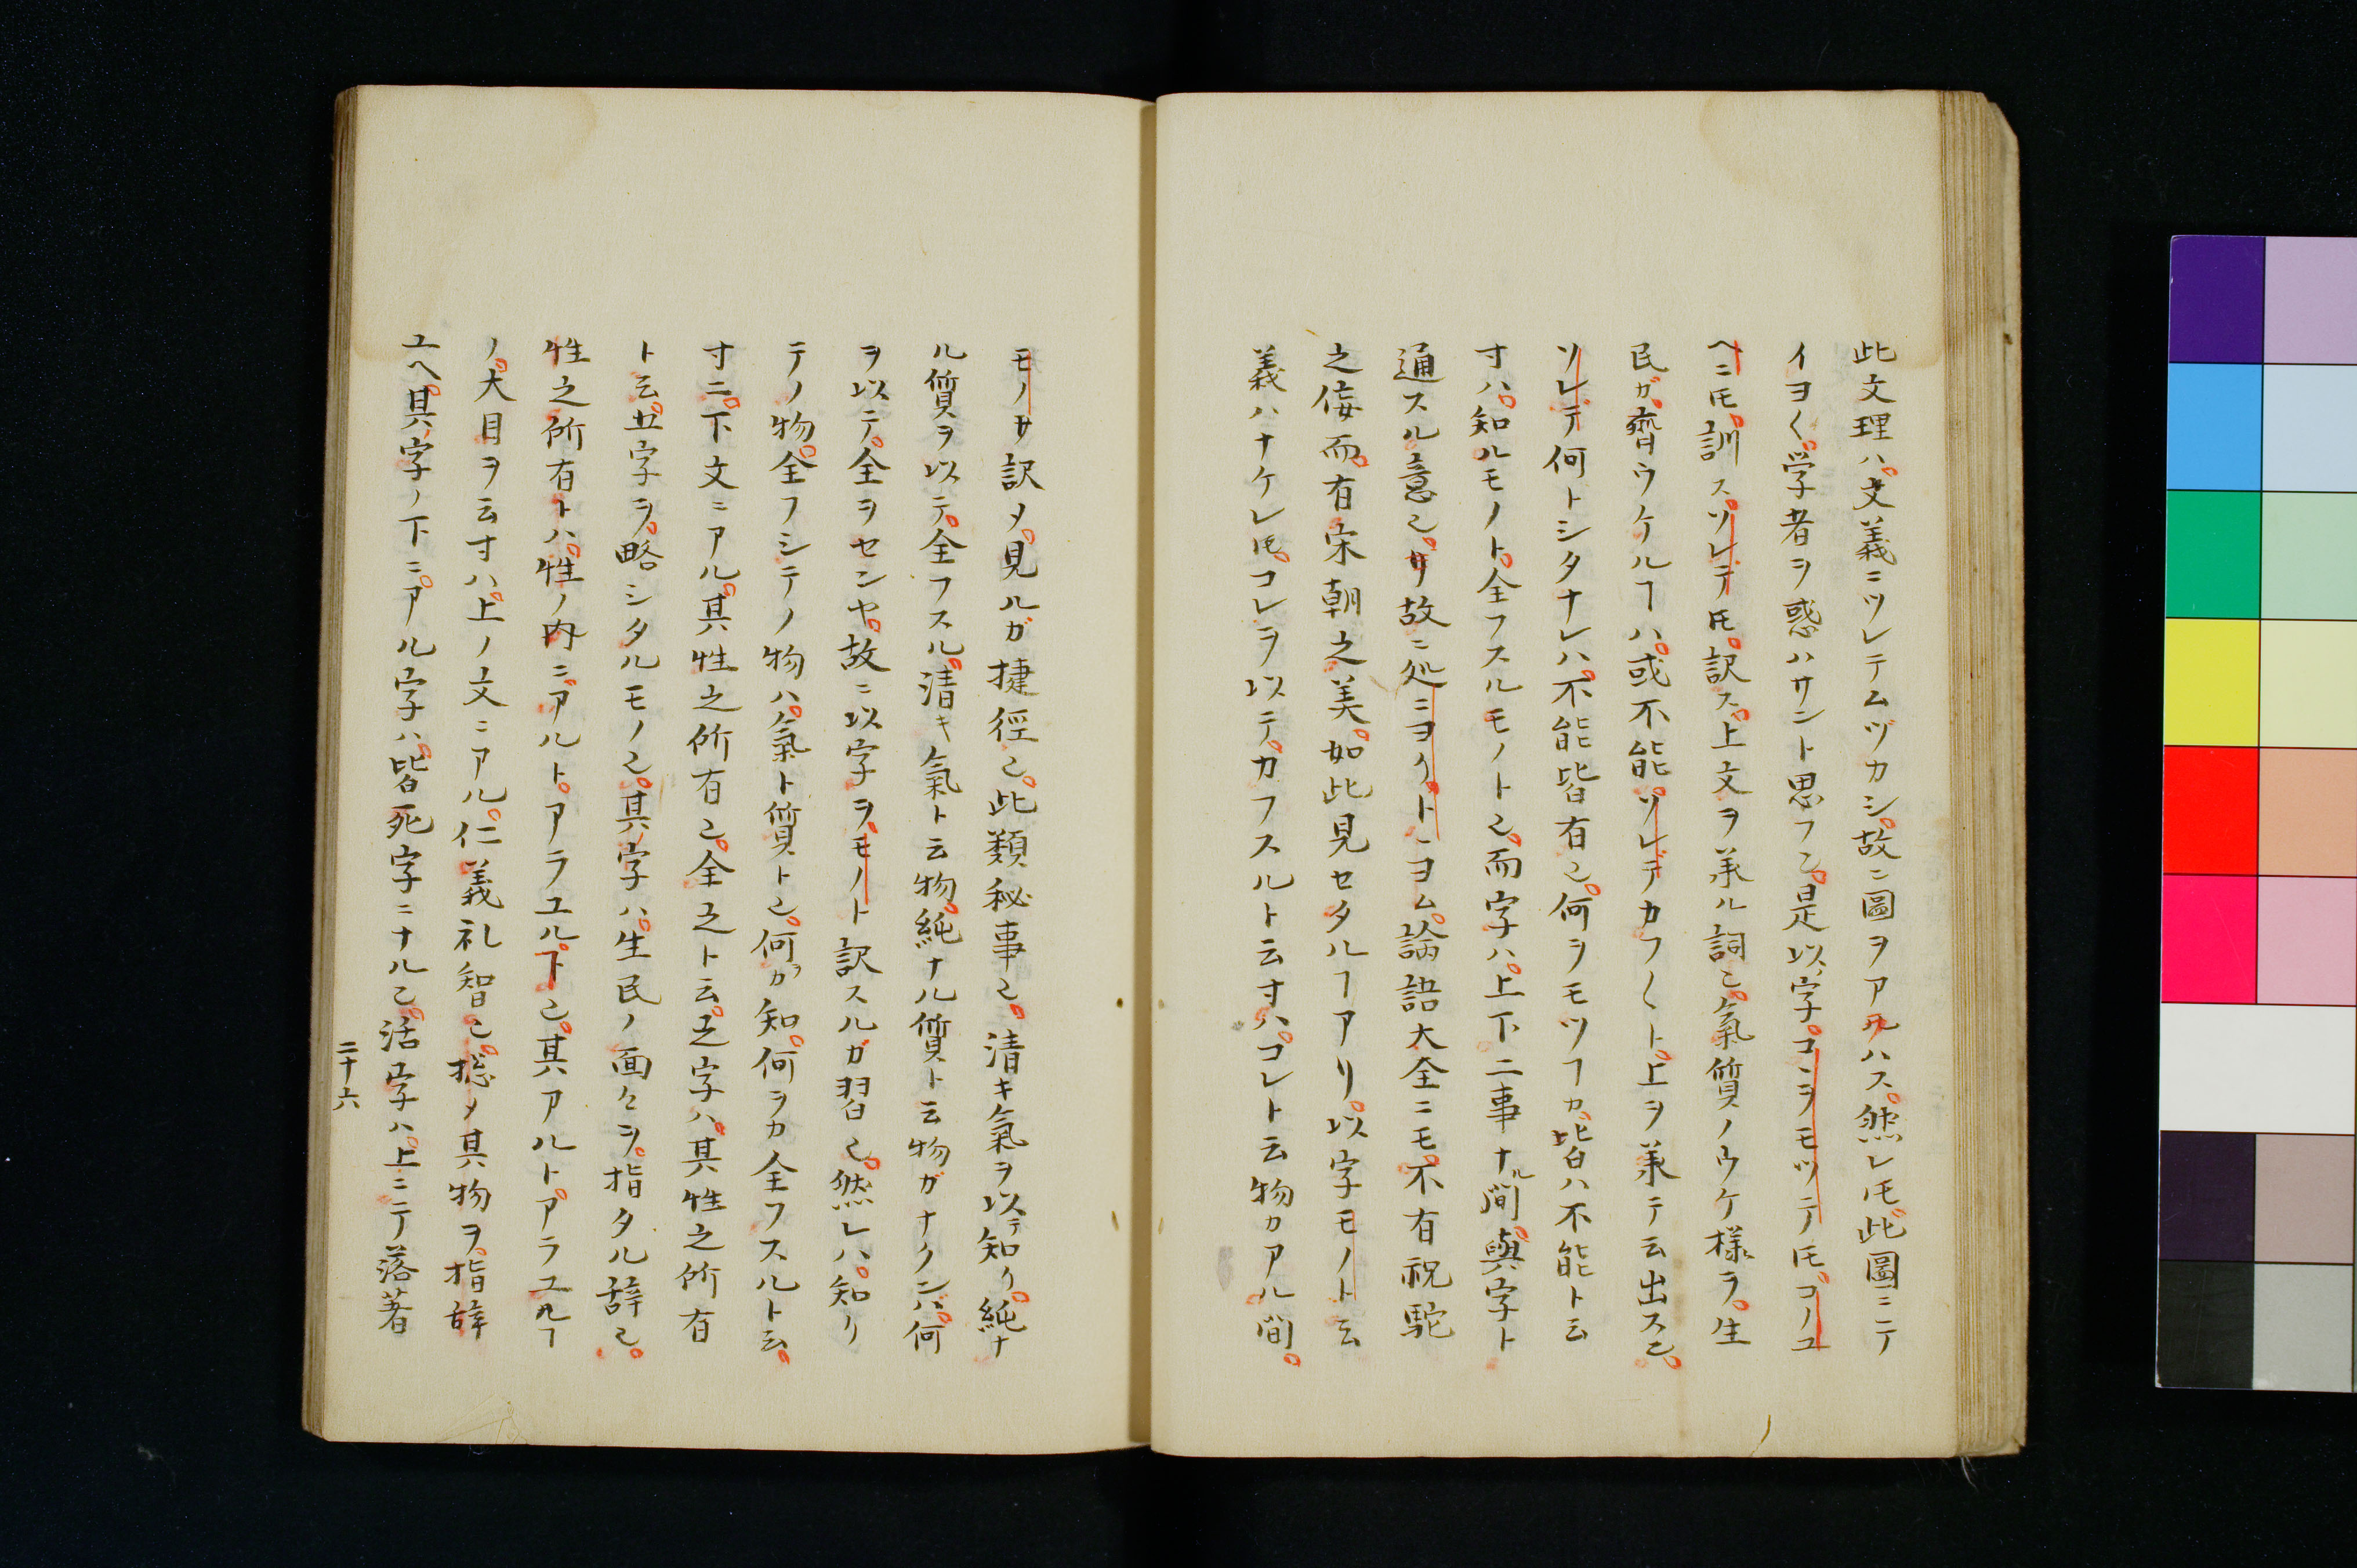 此文理ハ。文義ニツレテムヅカシ。故ニ圖ヲアラハス。然レ𪜈。此圖ニテ
イヨ〱。学者ヲ惑ハサント思フ也。是以字。コヽヲモツテ𪜈。コノユ
ヘニ𪜈。訓ス。ソレデ𪜈。訳ス。上文ヲ承ル詞也。氣質ノウケ様ヲ。生
民ガ。齊ウケルヿハ。或不能。ソレデカフ〱ト。上ヲ承テ云出ス也。
ソレデ何トシタナレハ。不能皆有也。何ヲモツフカ。皆ハ不能ト云
寸ハ。知ルモノト。全フスルモノト也。而字ハ。上下二事ナル間。與字ト
通スル意也。サ故ニ処ニヨクトヽヨム。論語大全ニモ。不有祝駝
之侫而。有宋朝之美。如此見セタルヿアリ。以字モノト云
義ハナケレ𪜈。コレヲ以テ。カフスルト云寸ハ。コレト云物カアル間。
モノサ訳メ。見ルガ捷徑也。此類秘事也。清キ氣ヲ以テ知リ。純ナ
ル質ヲ以テ。全フスル。清キ氣ト云物。純ナル質ト云物ガナクンバ。何
ヲ以テ。全ヲセンヤ。故ニ以字ヲ。モノト訳スルガ習也。然レハ。知リ
テノ物。全フシテノ物ハ。氣ト質ト也。何ヲカ知。何ヲカ全フスルト云。
寸ニ。下文ニアル。其性之所有也。全之ト云。之字ハ。其性之所有
ト云。五字ヲ。略シタルモノ也。其字ハ。生民ノ面々ヲ。指タル辞也。
性之所有トハ。性ノ内ニ。アルト。アラユルヿ也。其アルト。アラユルヿ
ノ。大目ヲ云寸ハ。上ノ文ニアル。仁義礼智也。搃メ其物ヲ。指辞
ユヘ。其字ノ下ニ。アル字ハ。皆死字ニナル也。活字ハ。上ニテ落著
二十六